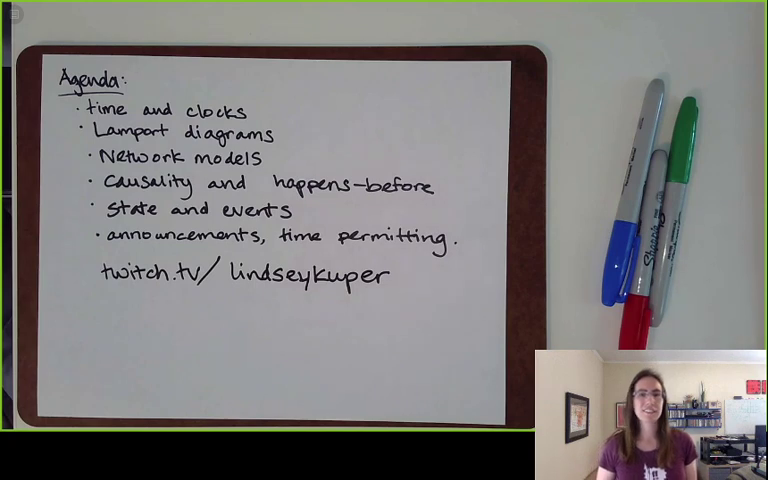 Agenda:
· time and clocks
· Lamport diagrams
· Network models
· Causality and happens-before
· State and events
· announcements, time permitting.
twitch.tv/lindseykuper
Sharpie